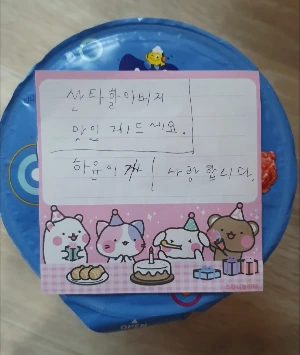 산타할아버지
맛인 게드세요.
하율이가 사랑합니다.
OPEN